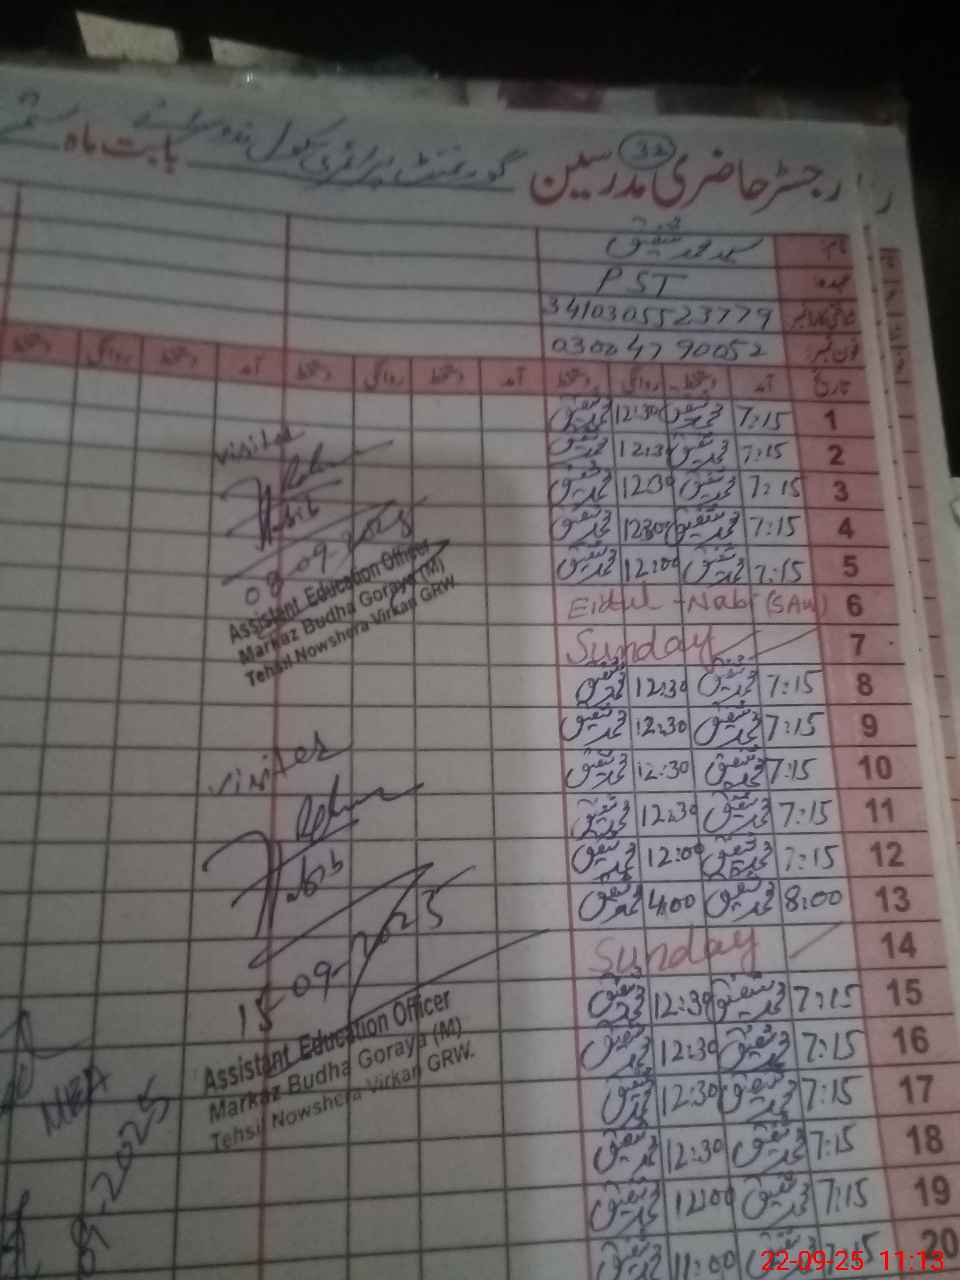 رجسٹر حاضری مدرسین
32
گورنمنٹ پرائمری سکول
بابت ماہ
نام
محمد شفیق
عہدہ PST
شناختی کارڈ نمبر 3410305523779
فون نمبر 03004790052
تاریخ آمد دستخط روانگی دستخط آمد دستخط روانگی دستخط آمد دستخط روانگی دستخط
1 7:15 محمد شفیق 12:30 محمد شفیق
2 7:15 محمد شفیق 12:30 محمد شفیق
3 7:15 محمد شفیق 12:30 محمد شفیق
4 7:15 محمد شفیق 12:30 محمد شفیق
5 7:15 محمد شفیق 12:00 محمد شفیق
6 Eidul - Nabi (SAW)
7 Sunday
8 7:15 محمد شفیق 12:30 محمد شفیق
9 7:15 محمد شفیق 12:30 محمد شفیق
10 7:15 محمد شفیق 12:30 محمد شفیق
11 7:15 محمد شفیق 12:30 محمد شفیق
12 7:15 محمد شفیق 12:00 محمد شفیق
13 8:00 محمد شفیق 4:00 محمد شفیق
14 Sunday
15 7:15 محمد شفیق 12:30 محمد شفیق
16 7:15 محمد شفیق 12:30 محمد شفیق
17 7:15 محمد شفیق 12:30 محمد شفیق
18 7:15 محمد شفیق 12:30 محمد شفیق
19 7:15 محمد شفیق 12:00 محمد شفیق
20 7:15 محمد شفیق 11:00 محمد شفیق
visited
Habib
08-09-2025
Assistant Education Officer
Markaz Budha Goraya (M)
Tehsil Nowshera Virkan GRW
visited
Habib
15-09-2025
Assistant Education Officer
Markaz Budha Goraya (M)
Tehsil Nowshera Virkan GRW.
MEA
22-09-25 11:13